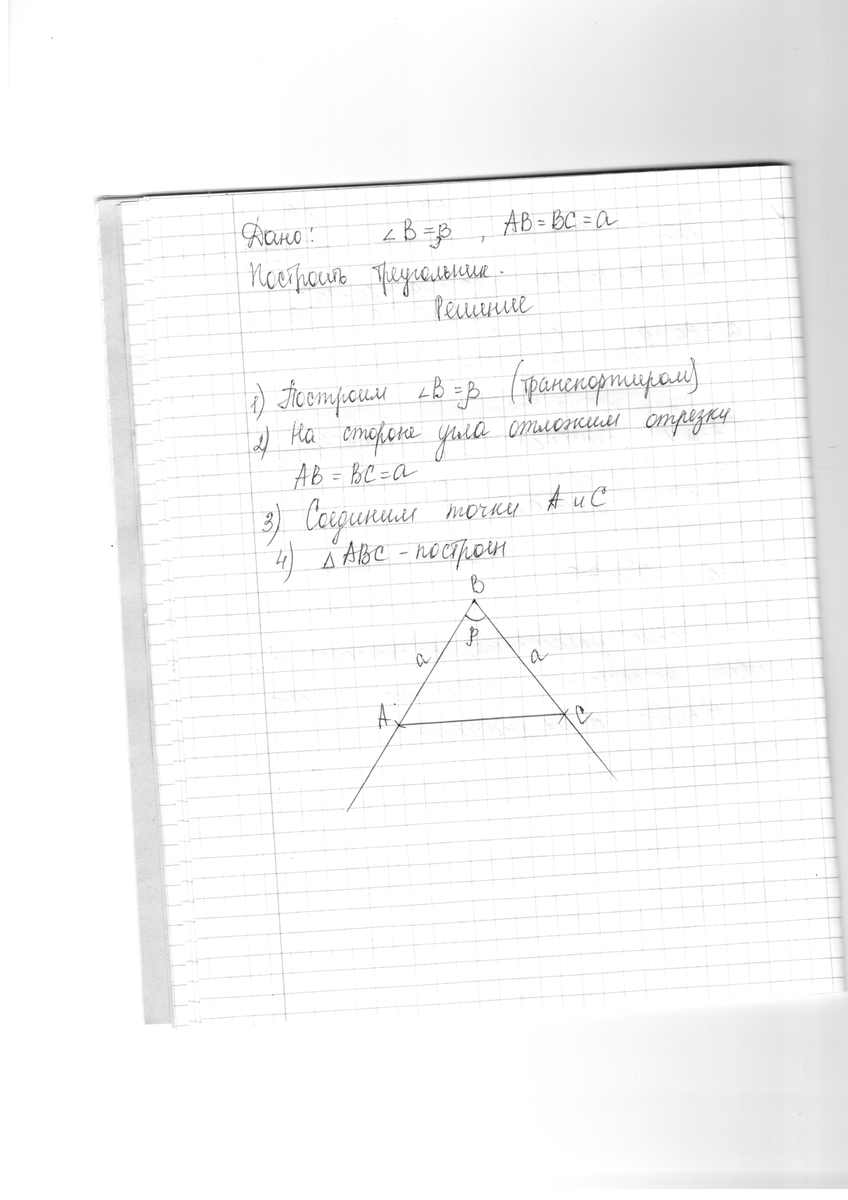 Дано: ∠B = β , AB = BC = a
Построить треугольник.
Решение
1) Построим ∠B = β (транспортиром)
2) На стороне угла отложим отрезки
AB = BC = a
3) Соединим точки A и C
4) △ABC – построен
B
β
a a
A C